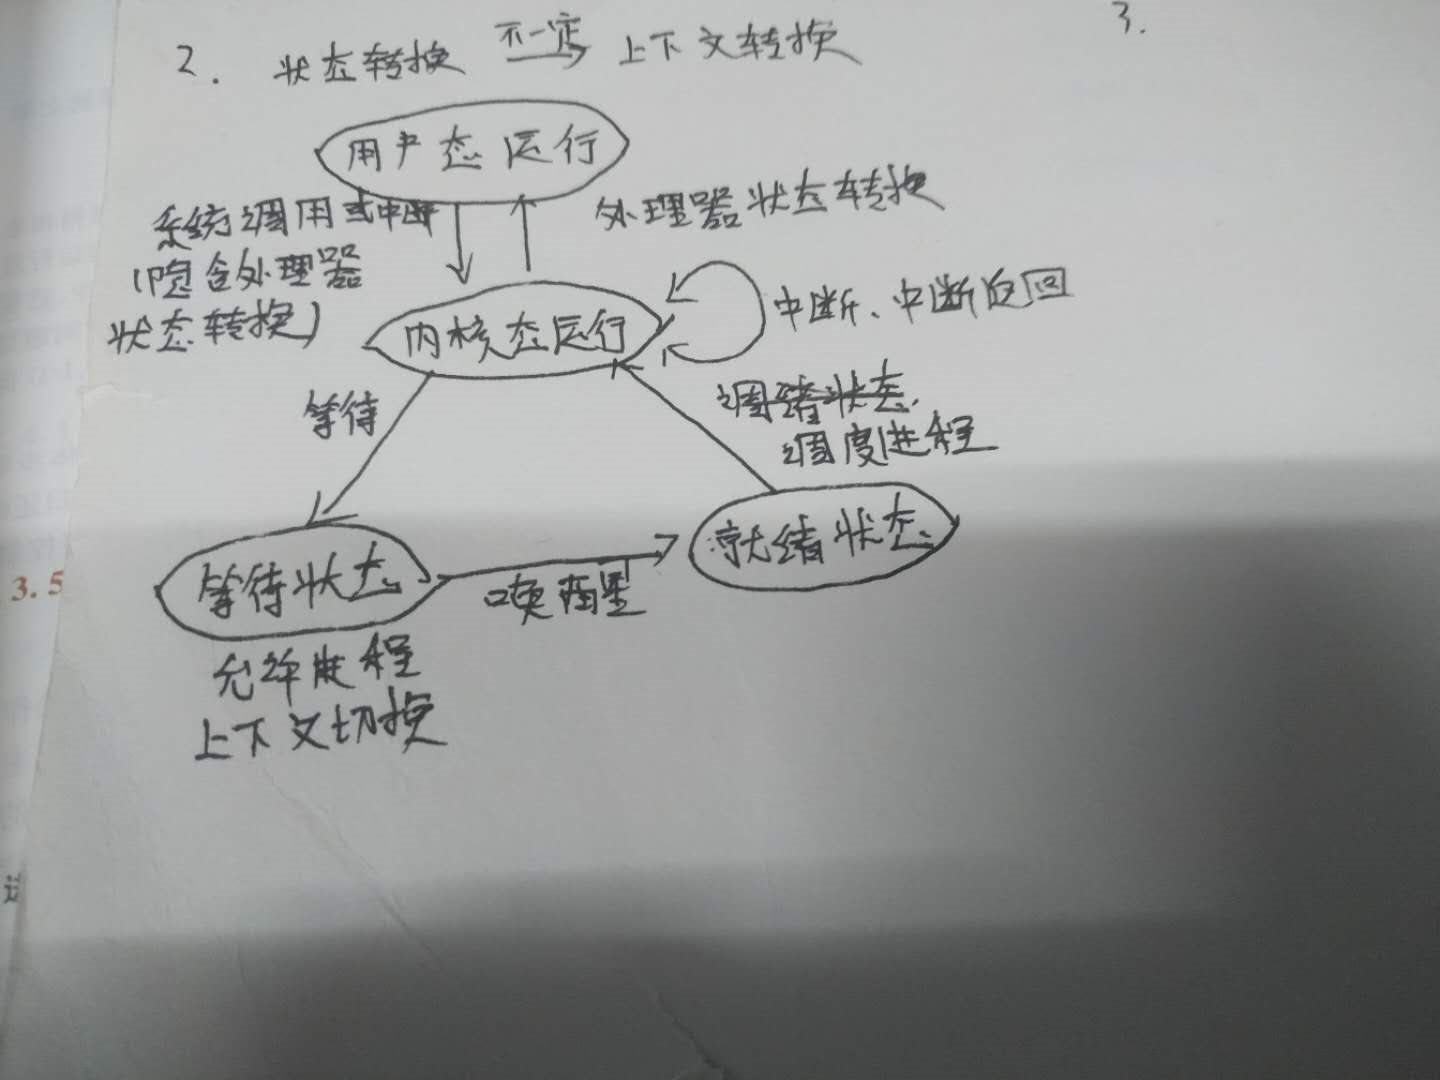 2. 状态转换 不一定 上下文转换
3.
用户态运行
系统调用或中断
(隐含处理器
状态转换)
处理器状态转换
内核态运行
中断、中断返回
等待
调绪状态
调度进程
等待状态
唤醒
就绪状态
允许进程
上下文切换
3.5